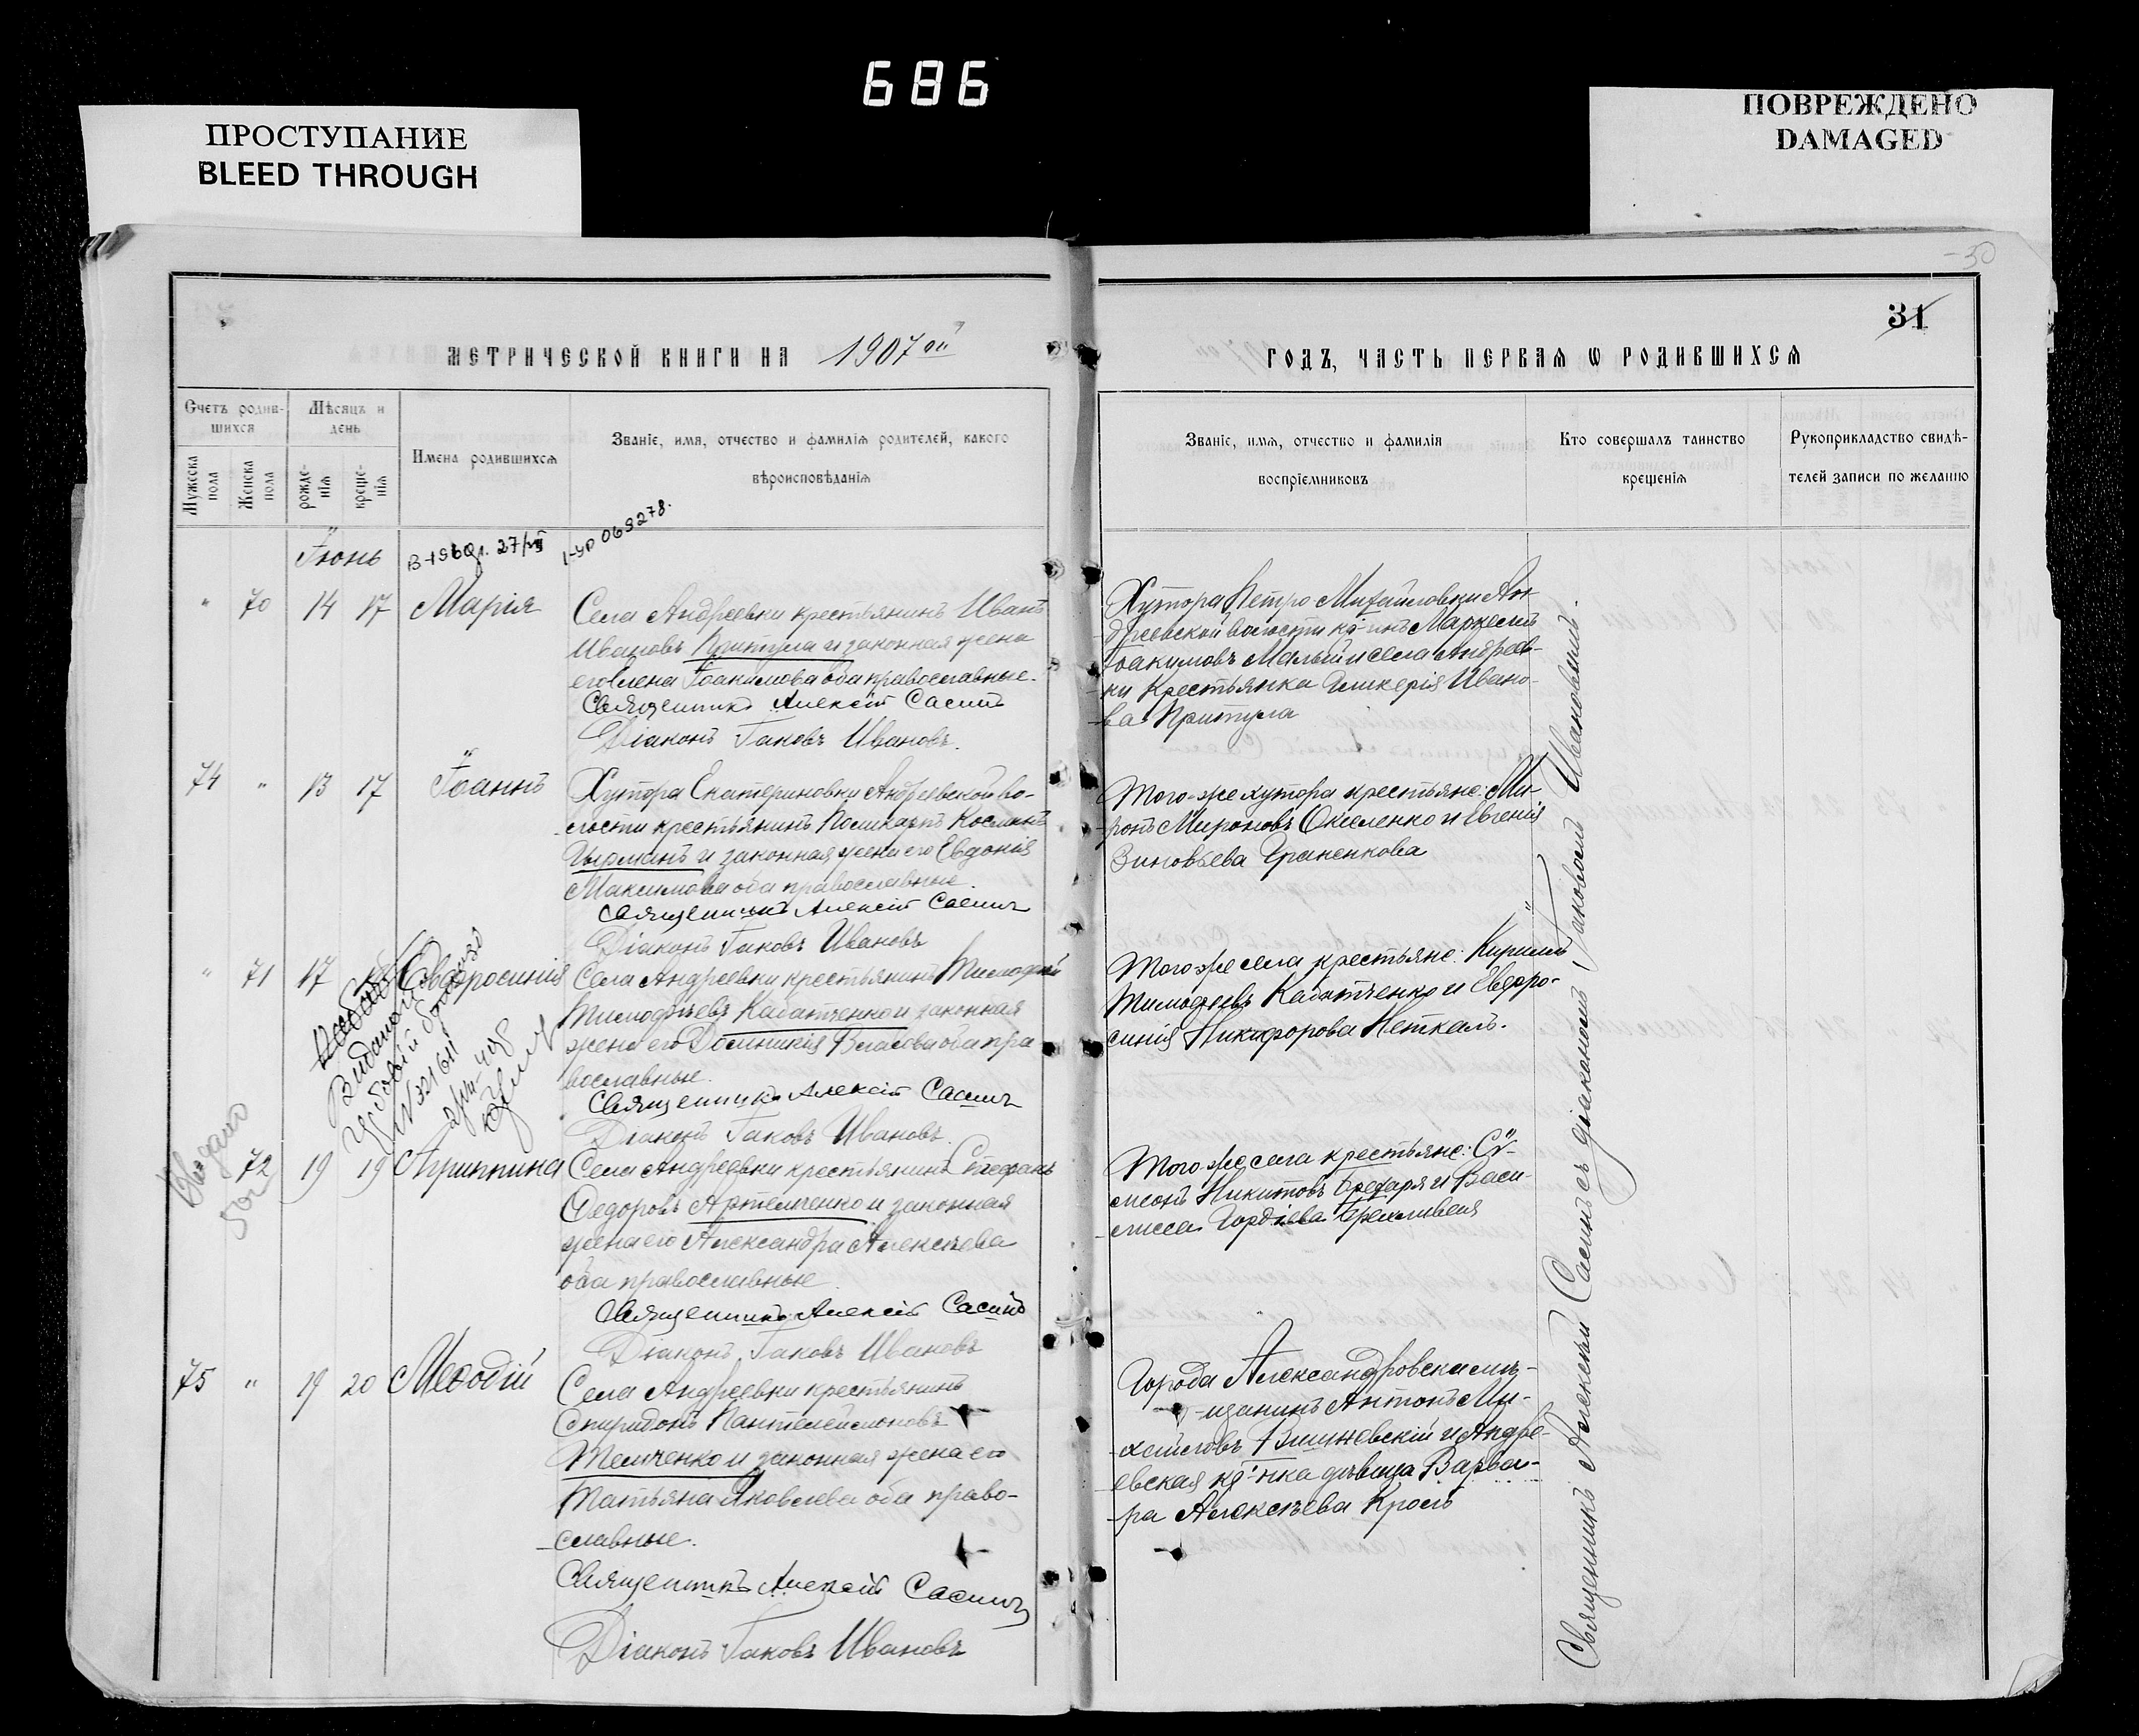 686
ПРОСТУПАНИЕ
BLEED THROUGH
ПОВРЕЖДЕНО
DAMAGED
30
31
МЕТРИЧЕСКОЙ КНИГИ НА 1907 ой
ГОДЪ, ЧАСТЬ ПЕРВАЯ Ѡ РОДИВШИХСЯ
Счетъ родив-
шихся
Мужеска пола
Женска пола
Мѣсяцъ и
день
рожде-
нія
креще-
нія
Имена родившихся
Званіе, имя, отчество и фамилія родителей, какого
вѣроисповѣданія
Званіе, имя, отчество и фамилія
воспріемниковъ
Кто совершалъ таинство
крещенія
Рукоприкладство свидѣ-
телей записи по желанію
Іюнь
27/VII
069278.
" 70 14 17 Марія
Села Андреевки крестьянинъ Иванъ
Ивановъ Притула и законная жена
его Елена Іоакимова оба православные.
Священникъ Алексій Сасинъ
Діаконъ Іаковъ Ивановъ.
Хутора Петро-Михайловки Ан-
дреевской волости кр-инъ Маркеллъ
Іоакимовъ Малый и села Андреев-
ки крестьянка Гликерія Ивано-
ва Притула
74 " 13 17 Іоаннъ
Хутора Екатериновки Андреевской во-
лости крестьянинъ Поликарпъ Косминъ
и законная жена его Евдокія
Максимова оба православные.
Священникъ Алексій Сасинъ
Діаконъ Іаковъ Ивановъ
Того-же хутора крестьяне: Ми-
ронъ Мироновъ и Евгенія
Зиновьева
" 71 17 Евфросинія
Села Андреевки крестьянинъ Тимофей
Тимофѣевъ Кабатченко и законная
жена его Домникія Власова оба пра
вославные.
Священникъ Алексій Сасинъ
Діаконъ Іаковъ Ивановъ.
Того же села крестьяне: Кириллъ
Тимофеевъ Кабатченко и Евфро-
синія Никифорова Неткалъ.
Видано
72 19 19 Агриппина
Села Андреевки крестьянинъ Стефанъ
Федоровъ Артемченко и законная
жена его Александра Алексѣева
оба православные.
Священникъ Алексій Сасинъ
Діаконъ Іаковъ Ивановъ
Того же села крестьяне: Сѵ-
меонъ Никитовъ и Васи-
лисса Гордіева
75 " 19 20 Меѳодій
Села Андреевки крестьянинъ
Спиридонъ Пантелеймоновъ
Темченко и законная жена его
Татьяна Яковлева оба право-
славные.
Священникъ Алексій Сасинъ
Діаконъ Іаковъ Ивановъ
Города Александровска мѣ-
щанинъ Антонъ Ми-
хайловъ Вишневскій и Андре-
евская кр-нка дѣвица Варва-
ра Алексѣева Кроль
Священникъ Алексѣй Сасинъ съ діакономъ Іаковомъ Ивановымъ.